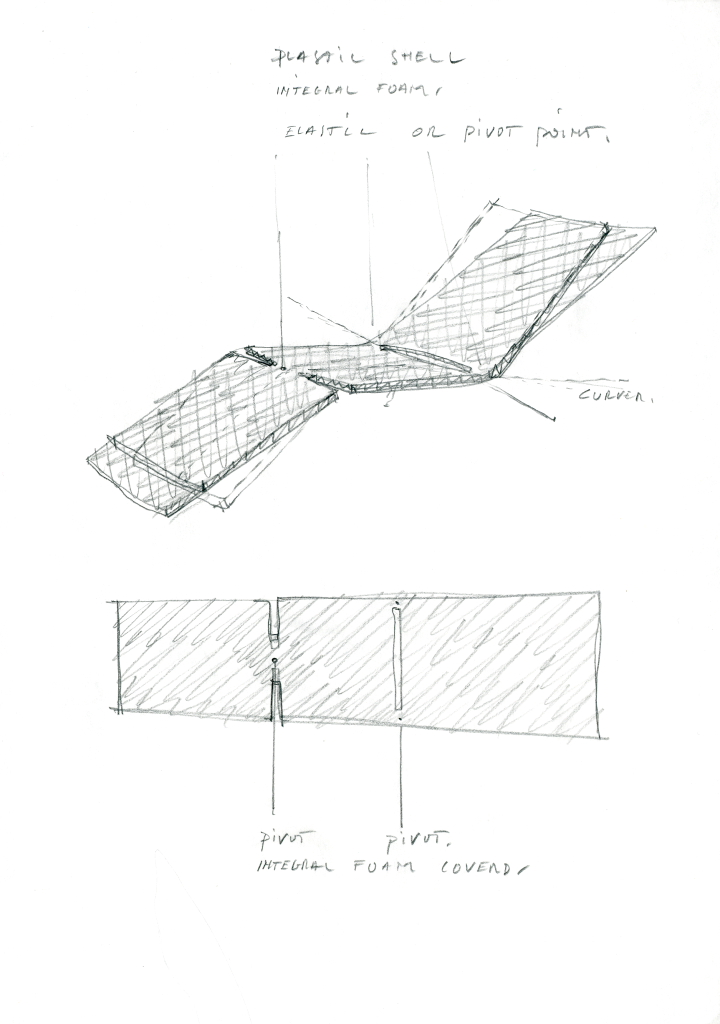 PLASTIC SHELL
INTEGRAL FOAM,
ELASTIC OR PIVOT POINT.
CURVER.
PIVOT PIVOT.
INTEGRAL FOAM COVERD,